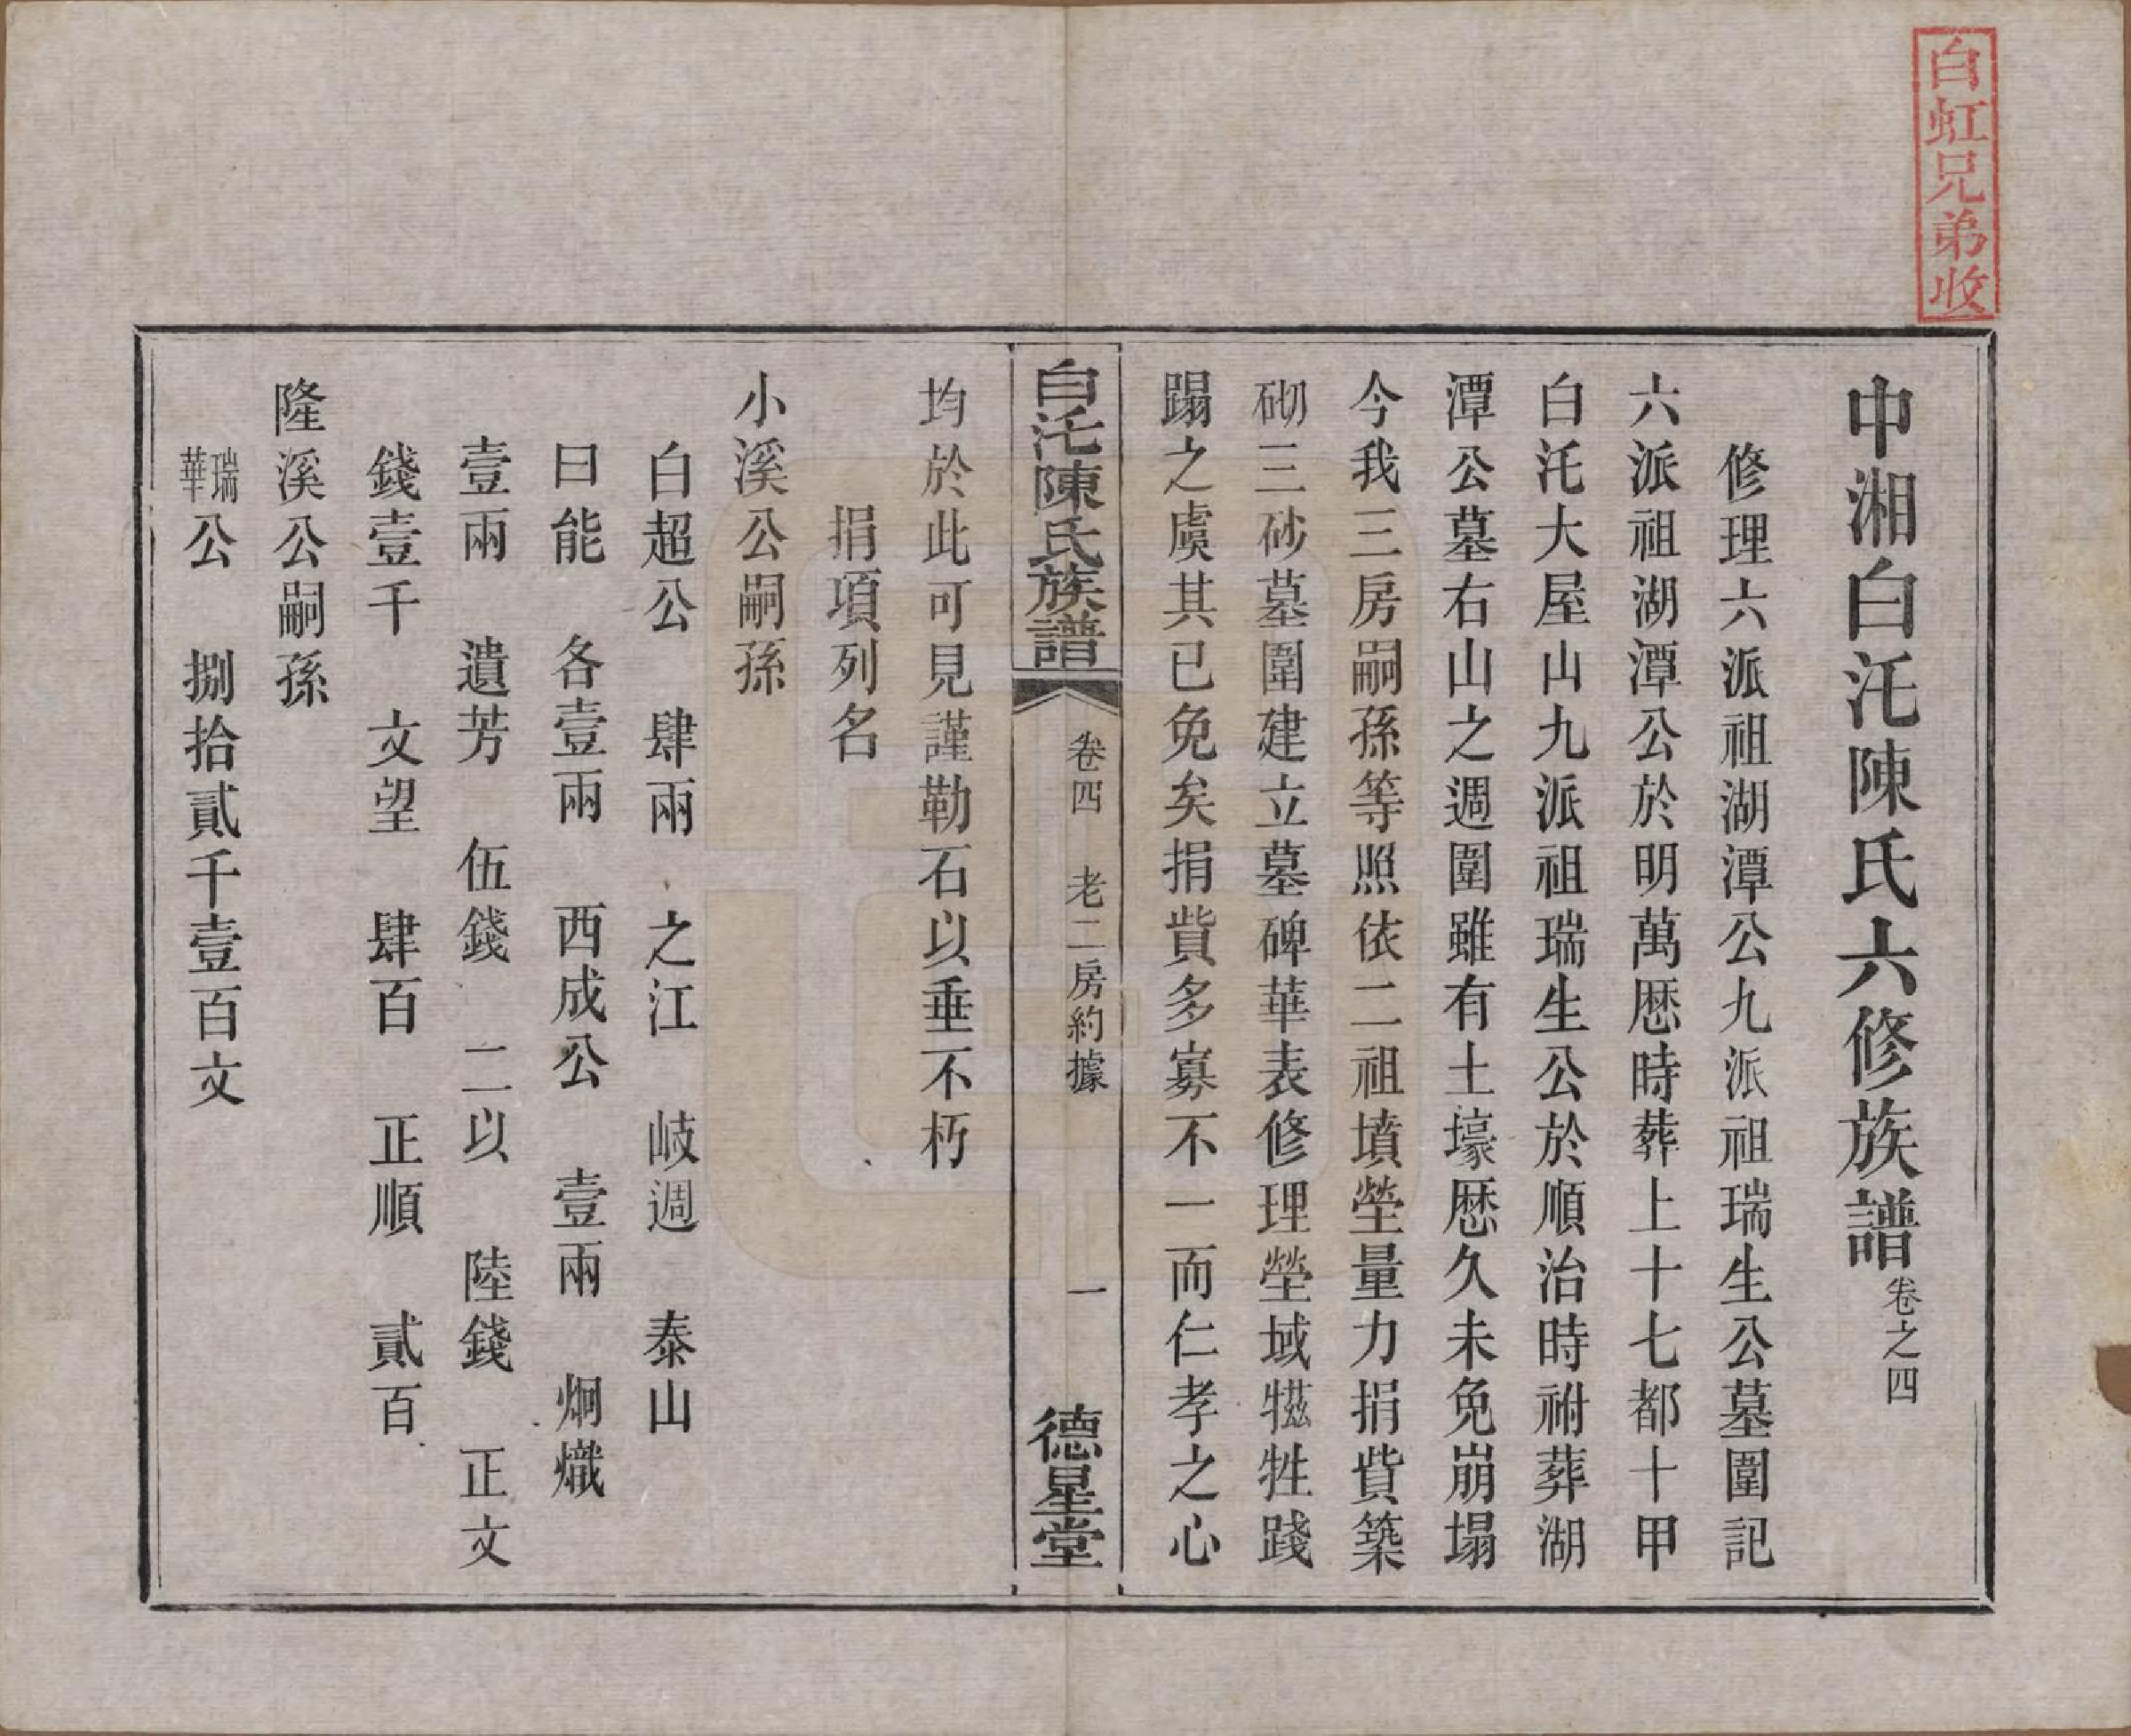 白虹兄弟收
中湘白汑陳氏六修族譜卷之四
修理六派祖湖潭公九派祖瑞生公墓圍記
六派祖湖潭公於明萬厯時葬上十七都十甲
白汑大屋山九派祖瑞生公於順治時祔葬湖
潭公墓右山之週圍雖有土壕厯久未免崩塌
今我三房嗣孫等照依二祖墳塋量力捐貲築
砌三砂墓圍建立墓碑華表修理塋域牲踐
蹋之虞其已免矣捐貲多寡不一而仁孝之心
白汑陳氏族譜 卷四 老二房約據 一 德星堂
均於此可見謹勒石以垂不朽
捐項列名
小溪公嗣孫
白超公 肆兩 之江 岐週 泰山
曰能 各壹兩 西成公 壹兩 炯熾
壹兩 遺芳 伍錢 二以 陸錢 正文
錢壹千 文望 肆百 正順 貳百
隆溪公嗣孫
瑞華公 捌拾貳千壹百文